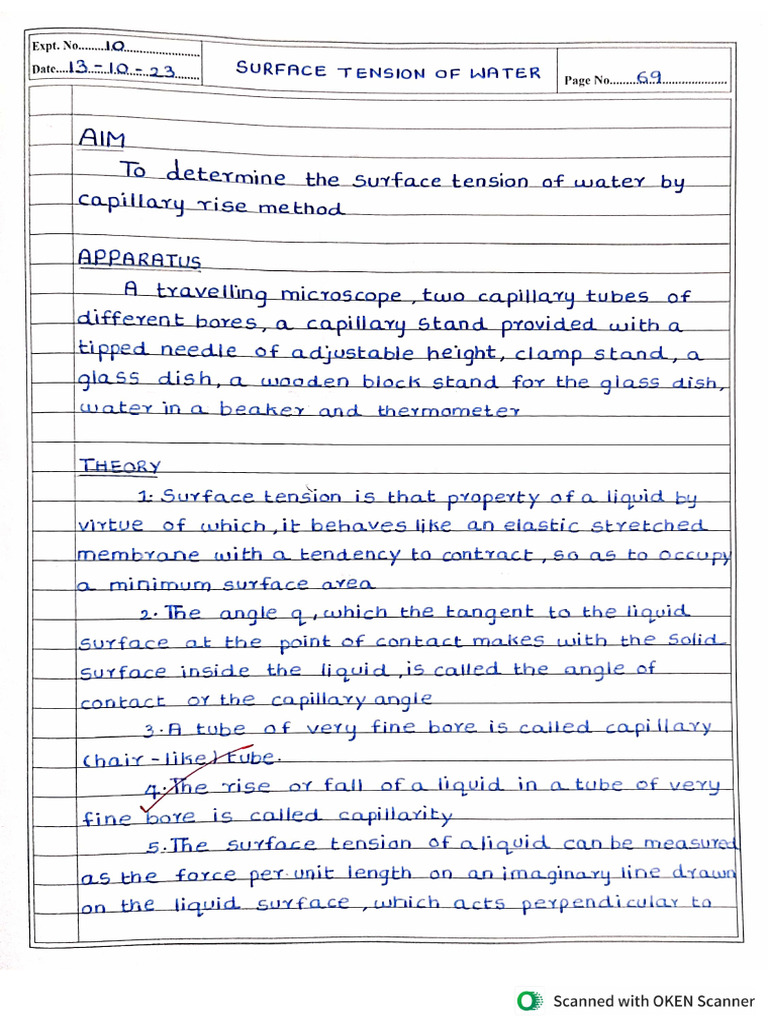 Expt. No. 10
Date 13-10-23
SURFACE TENSION OF WATER
Page No. 69
AIM
To determine the surface tension of water by
capillary rise method
APPARATUS
A travelling microscope, two capillary tubes of
different bores, a capillary stand provided with a
tipped needle of adjustable height, clamp stand, a
glass dish, a wooden block stand for the glass dish,
water in a beaker and thermometer
THEORY
1. Surface tension is that property of a liquid by
virtue of which, it behaves like an elastic stretched
membrane with a tendency to contract, so as to occupy
a minimum surface area
2. The angle q, which the tangent to the liquid
surface at the point of contact makes with the solid
surface inside the liquid, is called the angle of
contact or the capillary angle
3. A tube of very fine bore is called capillary
(hair-like) tube.
4. The rise or fall of a liquid in a tube of very
fine bore is called capillarity
5. The surface tension of a liquid can be measured
as the force per unit length on an imaginary line drawn
on the liquid surface, which acts perpendicular to
Scanned with OKEN Scanner